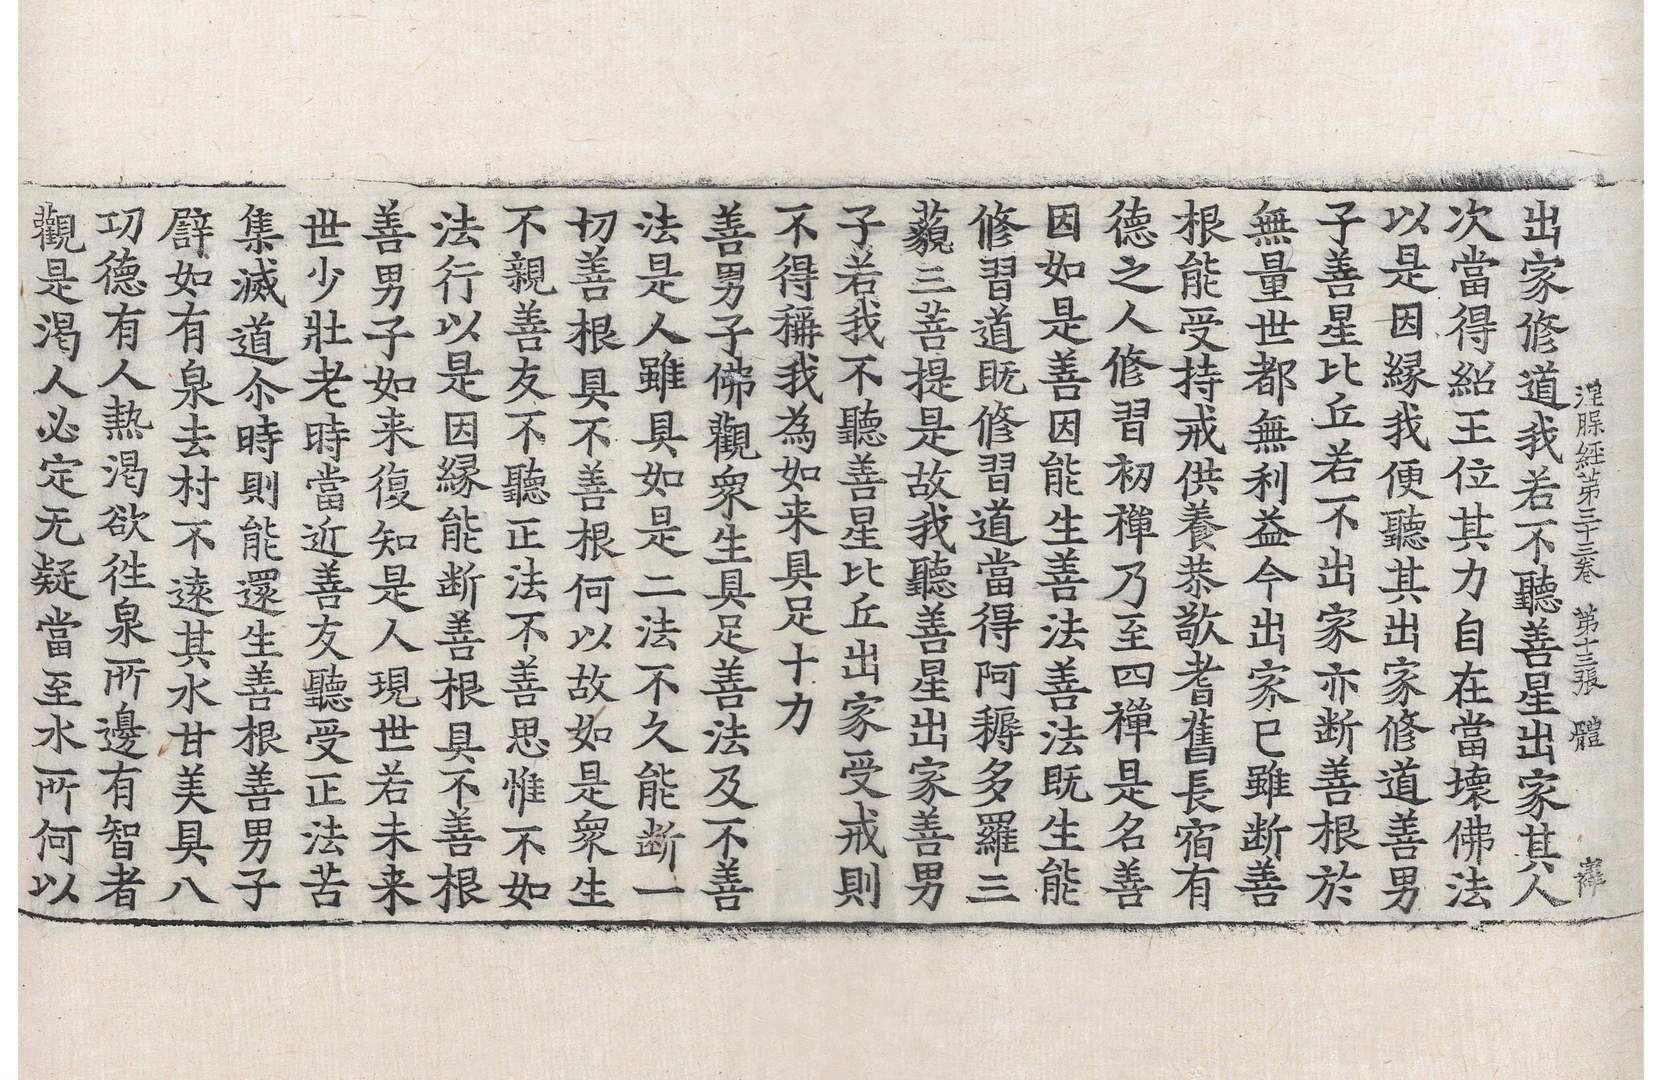 涅槃經第三十三卷 第十三張 體
出家修道我若不聽善星出家其人
次當得紹王位其力自在當壞佛法
以是因縁我便聽其出家修道善男
子善星比丘若不出家亦断善根於
無量世都無利益今出家已雖断善
根能受持戒供養恭敬耆舊長宿有
德之人修習初禪乃至四禪是名善
因如是善因能生善法善法既生能
修習道既修習道當得阿耨多羅三
藐三菩提是故我聽善星出家善男
子若我不聽善星比丘出家受戒則
不得稱我為如来具足十力
善男子佛觀衆生具足善法及不善
法是人雖具如是二法不久能断一
切善根具不善根何以故如是衆生
不親善友不聽正法不善思惟不如
法行以是因縁能断善根具不善根
善男子如来復知是人現世若未来
世少壯老時當近善友聽受正法苦
集滅道尒時則能還生善根善男子
譬如有泉去村不遠其水甘美具八
功德有人熱渴欲往泉所邊有智者
觀是渴人必定无疑當至水所何以